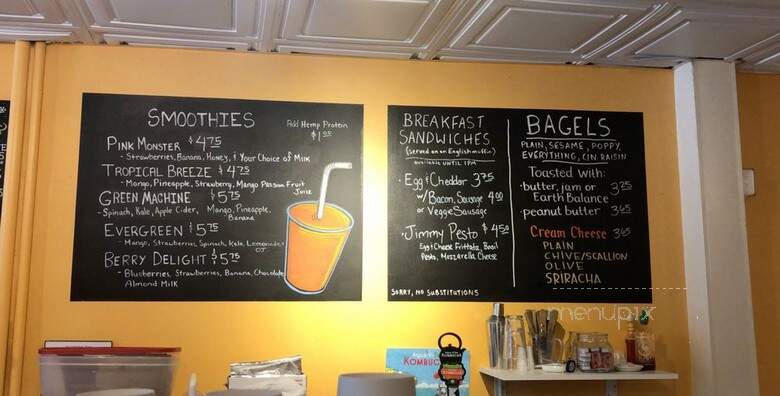 SMOOTHIES
Add Hemp Protein
$1.00
PINK MONSTER $475
- Strawberries, Banana, Honey, & Your Choice of Milk
TROPICAL BREEZE $475
- Mango, Pineapple, Strawberry, Mango Passion Fruit
Juice
GREEN MACHINE $575
- Spinach, Kale, Apple Cider, Mango, Pineapple,
Banana
EVERGREEN $575
- Mango, Strawberries, Spinach, Kale, Lemonade,
OJ
BERRY DELIGHT $575
- Blueberries, Strawberries, Banana, Chocolate
Almond Milk
BREAKFAST
SANDWICHES
(served on an English muffin)
AVAILABLE UNTIL 1PM
· Egg & Cheddar 375
w/ Bacon, Sausage 400
or Veggie Sausage
· Jimmy Pesto $450
Egg & Cheese Frittata, Basil
Pesto, Mozzarella Cheese
SORRY, NO SUBSTITUTIONS
BAGELS
PLAIN, SESAME, POPPY,
EVERYTHING, CIN RAISIN
Toasted with:
· butter, jam or 325
Earth Balance
· peanut butter 365
Cream Cheese 365
PLAIN
CHIVE/SCALLION
OLIVE
SRIRACHA
menupix
KOMBUC